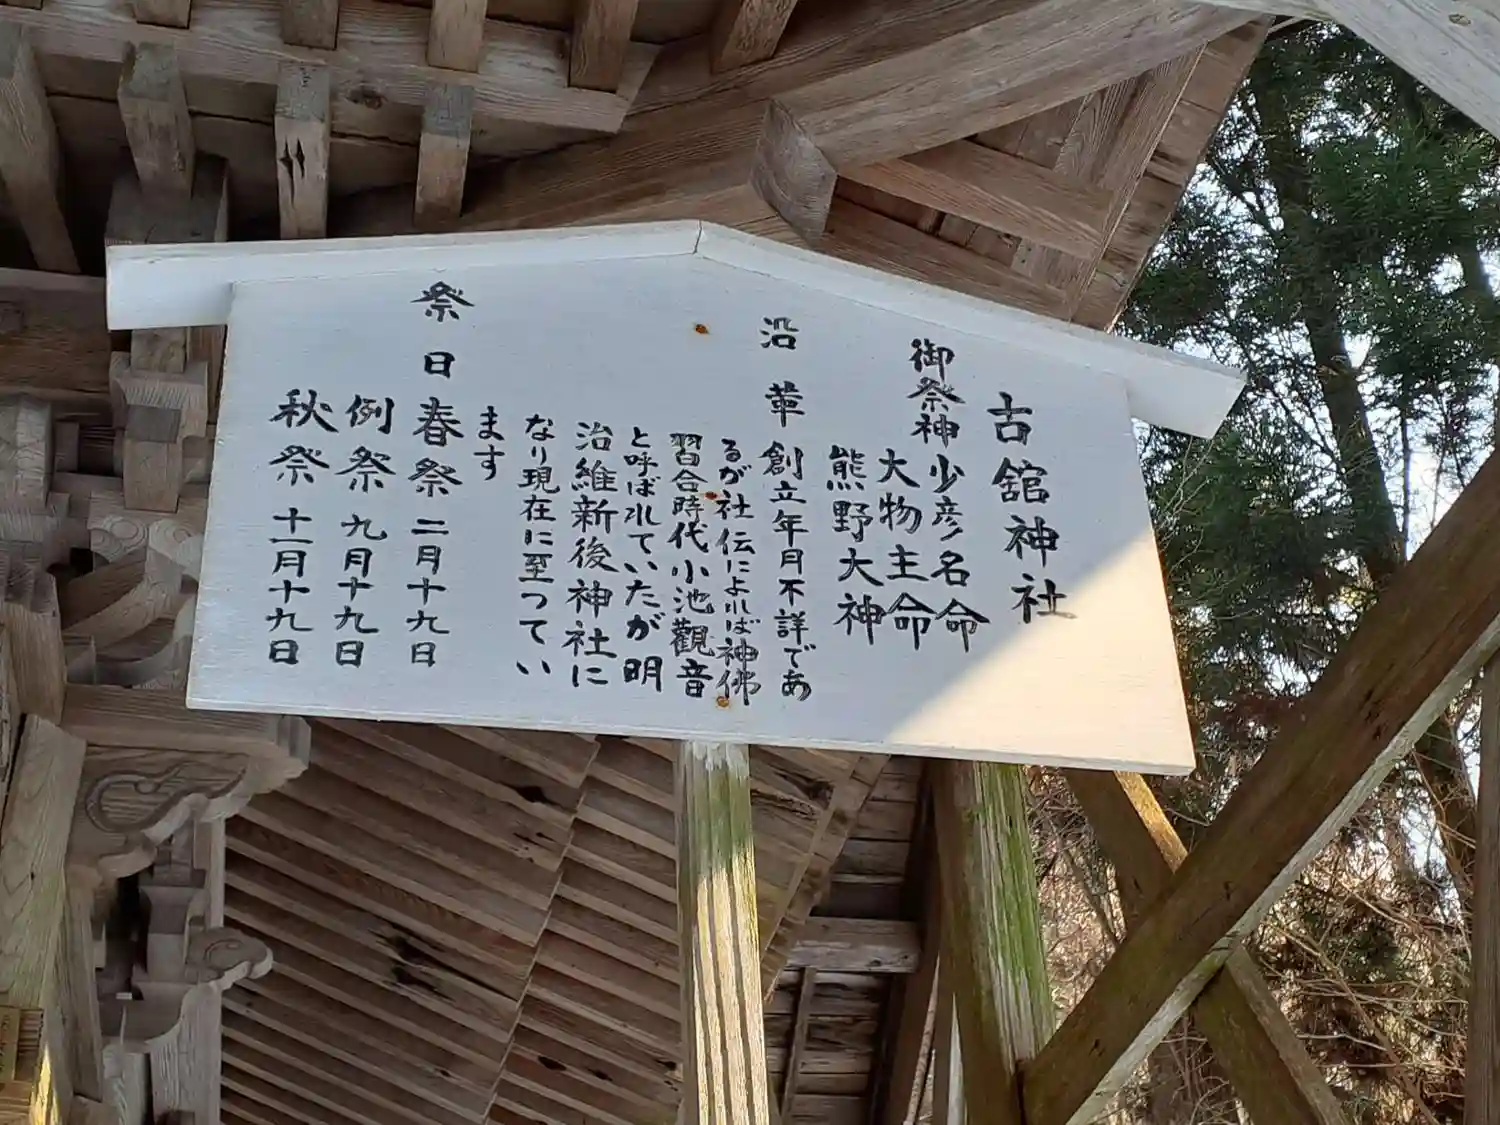 古舘神社
御祭神 少彦名命
大物主命
熊野大神
沿革 創立年月不詳であ
るが社伝によれば神佛
習合時代小池觀音
と呼ばれていたが明
治維新後神社に
なり現在に至ってい
ます
祭日 春祭 二月十九日
例祭 九月十九日
秋祭 十一月十九日